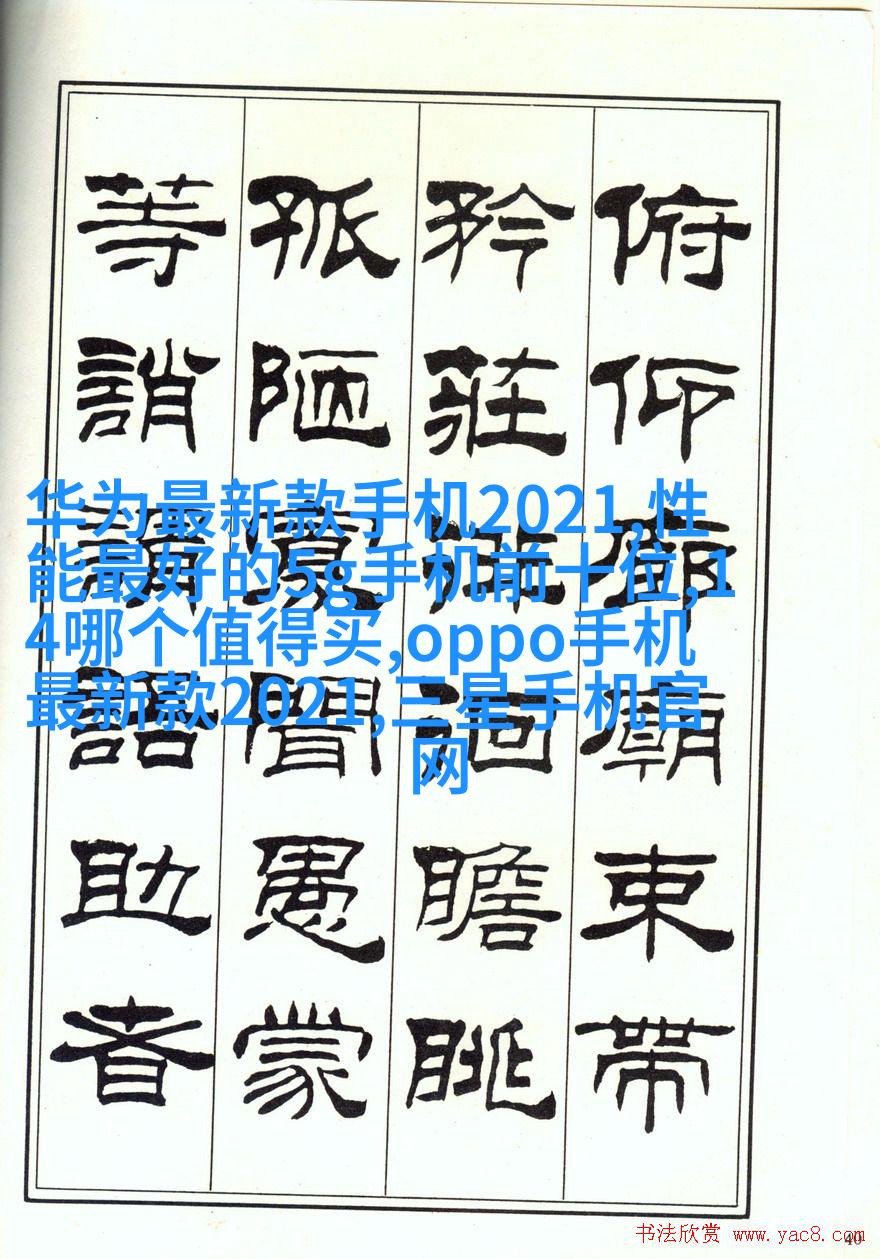 俯仰廊廟束帶
矜莊徘徊瞻眺
孤陋寡聞愚蒙
等誚謂語助者
华为最新款手机2021,性
能最好的5g手机前十位,1
4哪个值得买,oppo手机
最新款2021,三星手机官
网
书法欣赏 www.yac8.com
40